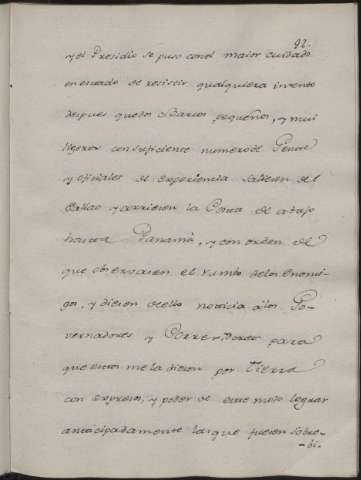 92.
y el Presidio se puso con el maior cuidado
en estado de resistir qualquiera invento
despues que dos Barcos pequeños, y mui
ligeros con suficiente numero de Gente
y oficiales de experiencia salieron del
Callao y corrieron la Costa de abajo
hasta Panamá, y con orden de
que observasen el rumbo de los Enemi-
gos, y diesen de ello noticia a los Go-
vernadores y Corregidores para
que estos me la diesen por tierra
con expresos, y poder de este modo lograr
anticipadamente la que fuesen sobre-
-bi.